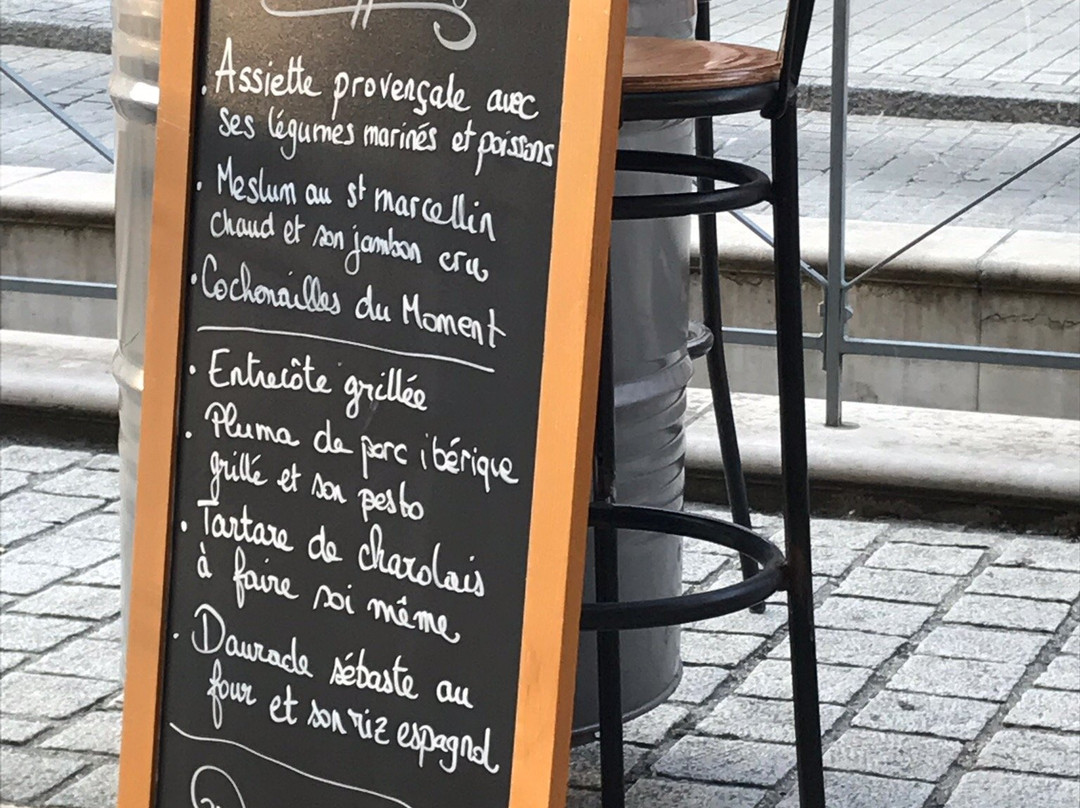 . Assiette provençale avec
ses légumes marinés et poissons
. Meslum au st marcellin
chaud et son jambon cru
. Cochonailles du Moment
. Entrecôte grillée
. Pluma de porc ibérique
grillé et son pesto
. Tartare de charolais
à faire soi même
. Daurade sébaste au
four et son riz espagnol